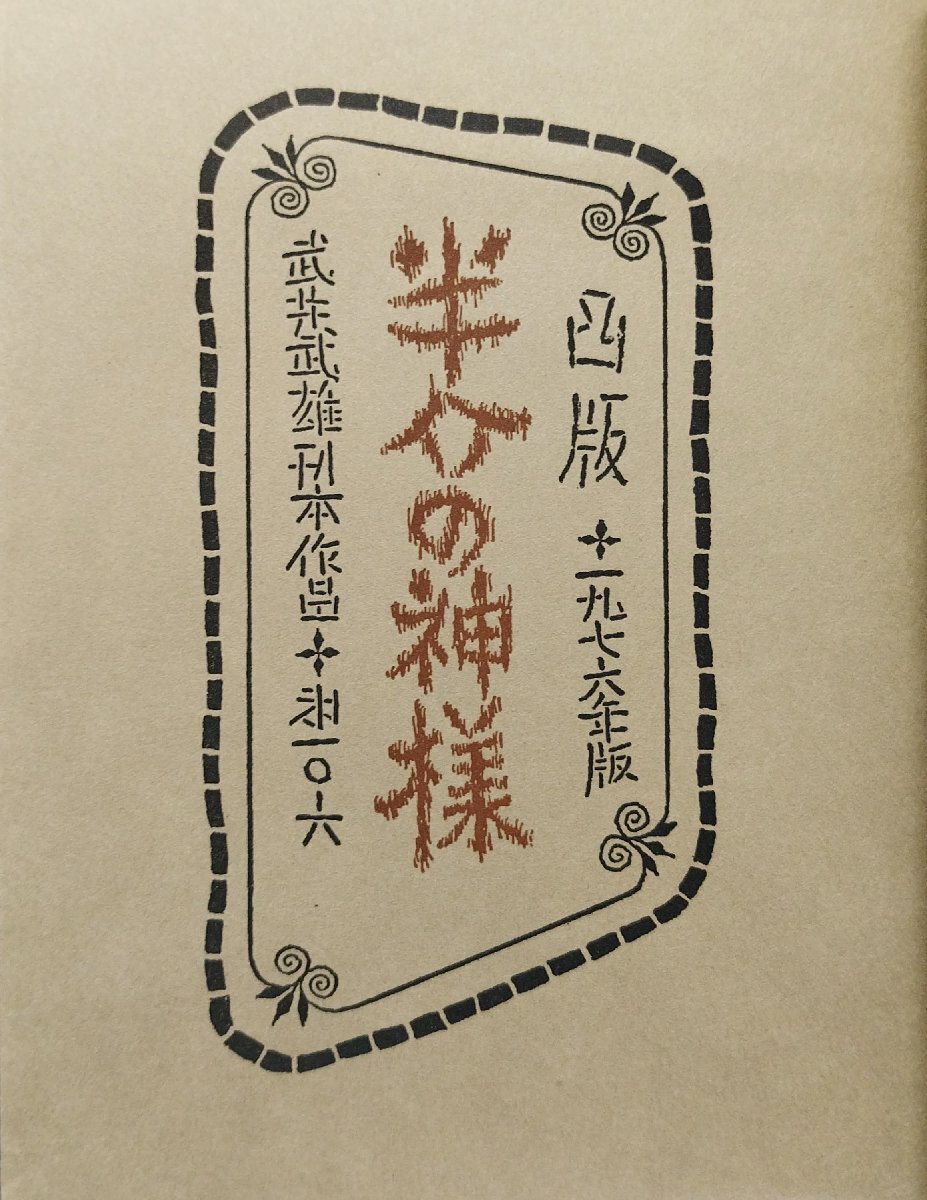 凸版 一九七六年版
半分の神様
武井武雄刊本作品 一〇六